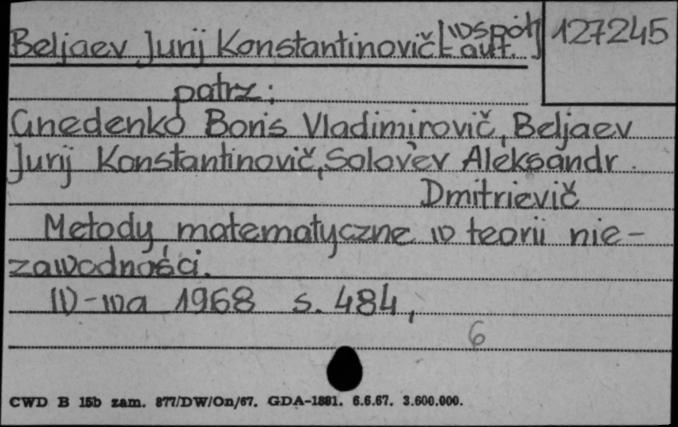 Beljaev Jurij Konstantinovič [współaut.]
127245
patrz:
Gnedenko Boris Vladimirovič, Beljaev
Jurij Konstantinovič, Solov'ev Aleksandr
Dmitrievič
Metody matematyczne w teorii nie-
zawodności.
W-wa 1968 s. 484,
6
CWD B 15b zam. 877/DW/On/67. GDA-1881. 6.6.67. 3.600.000.